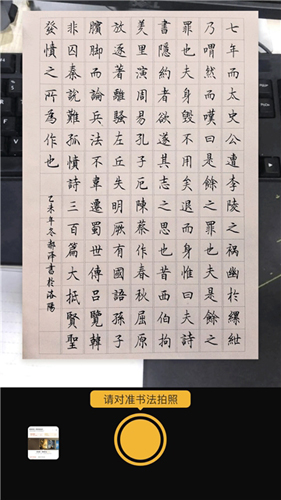 七年而太史公遭李陵之禍幽於縲紲
乃喟然而嘆曰是餘之罪也夫是餘之
罪也夫身毀不用矣退而身惟曰夫詩
書隱約者欲遂其志之思也昔西伯拘
羑里演周易孔子厄陳蔡作春秋屈原
放逐著離騷左丘失明厥有國語孫子
臏脚而論兵法不韋遷蜀世傳呂覽韓
非囚秦說難孤憤詩三百篇大抵賢聖
發憤之所為作也
乙未年冬郝洋書於洛陽
请对准书法拍照